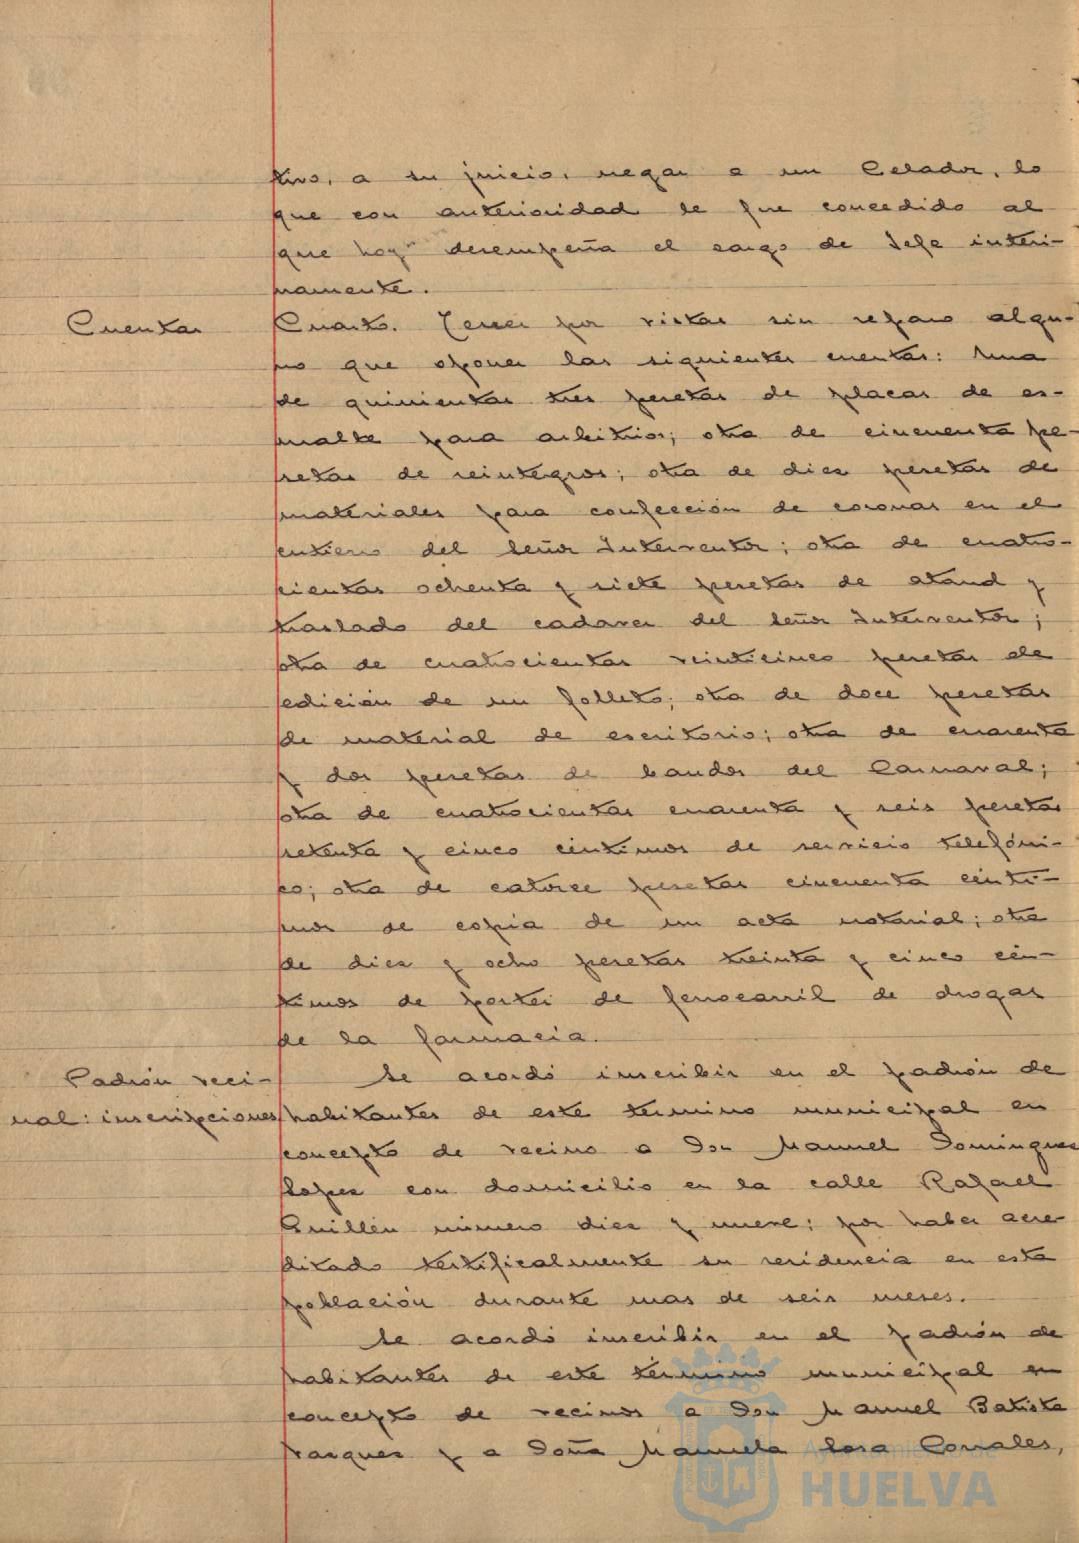 tivo, a su juicio, negar a un Celador, lo
que con anterioridad se fue concedido al
que hoy desempeña el cargo de Jefe interi-
namente.
Cuentas
Cuarto. Tener por vistas sin reparo algu-
no que oponer las siguientes cuentas: Una
de quinientas tres pesetas de placas de es-
malte para arbitrios; otra de cincuenta pe-
setas de reintegros; otra de diez pesetas de
materiales para confección de coronas en el
entierro del Señor Interventor; otra de cuatro-
cientas ochenta y siete pesetas de ataud y
traslado del cadaver del Señor Interventor;
otra de cuatrocientas veinticinco pesetas de
edición de un folleto; otra de doce pesetas
de material de escritorio; otra de cuarenta
y dos pesetas de bandos del Carnaval;
otra de cuatrocientas cuarenta y seis pesetas
setenta y cinco céntimos de servicio telefóni-
co; otra de catorce pesetas cincuenta cénti-
mos de copia de un acta notarial; otra
de diez y ocho pesetas treinta y cinco cén-
timos de portes de ferrocarril de drogas
de la farmacia.
Padrón veci-
nal: inscripciones
Se acordó inscribir en el padrón de
habitantes de este termino municipal en
concepto de vecino a Don Manuel Domingues
Lopez con domicilio en la calle Rafael
Guillén número diez y nueve; por haber acre-
ditado testificalmente su residencia en esta
población durante mas de seis meses.
Se acordó inscribir en el padrón de
habitantes de este término municipal en
concepto de vecinos a Don Manuel Batista
Vazquez y a Doña Manuela Lora Corrales,
Ayuntamiento de
HUELVA